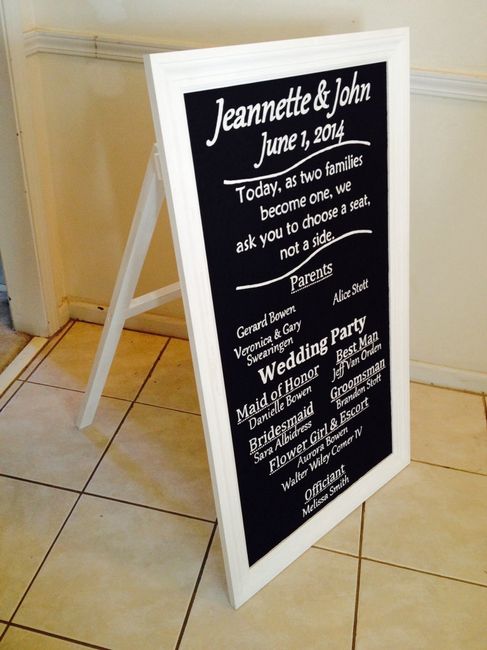 Jeannette & John
June 1, 2014
Today, as two families
become one, we
ask you to choose a seat,
not a side.
Parents
Gerard Bowen
Alice Stott
Veronica & Gary
Swearingen
Wedding Party
Maid of Honor
Danielle Bowen
Best Man
Jeff Van Orden
Bridesmaid
Sara Albidress
Groomsman
Brandon Stott
Flower Girl & Escort
Aurora Bowen
Walter Wiley Comer IV
Officiant
Melissa Smith